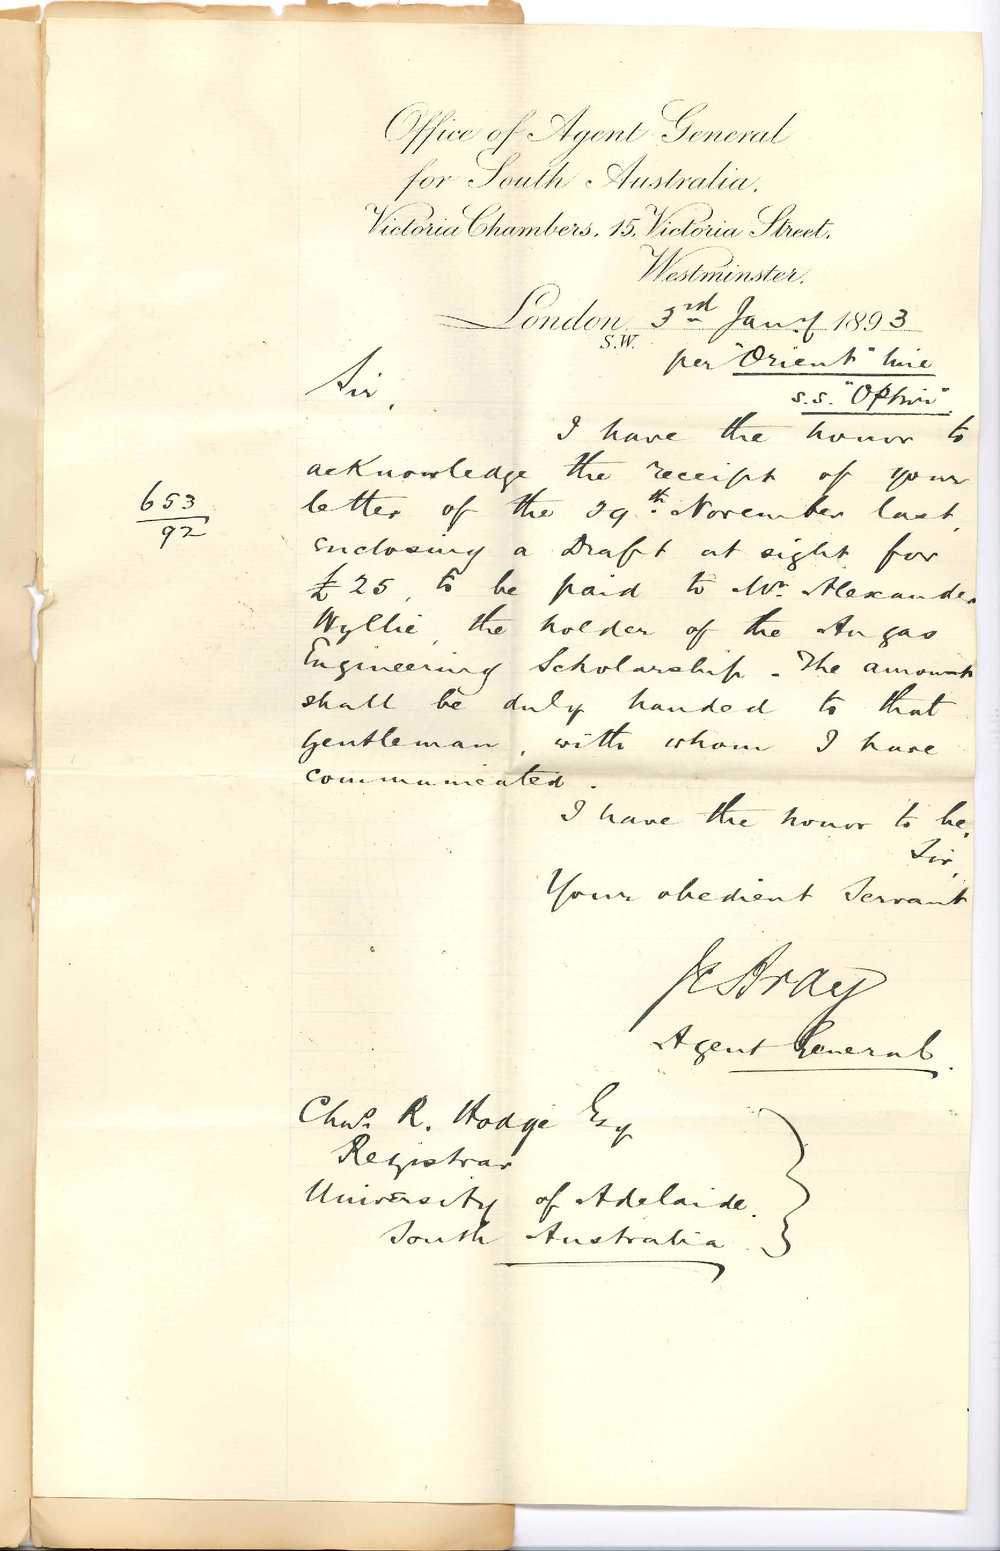 Office of Agent General
for South Australia,
Victoria Chambers, 15, Victoria Street,
Westminster,
London 3rd Jany 1893
S.W.
per "Orient" line
s.s. "Ophir".
Sir,
I have the honor to
acknowledge the receipt of your
letter of the 29th November last,
653
92
enclosing a Draft at sight for
£25, to be paid to Mr. Alexander
Wyllie, the holder of the Angas
Engineering Scholarship. The amount
shall be duly handed to that
gentleman, with whom I have
communicated.
I have the honor to be,
Sir,
Your obedient Servant
JCBray
Agent General.
Chas. R. Hodge Esq
Registrar
University of Adelaide.
South Australia